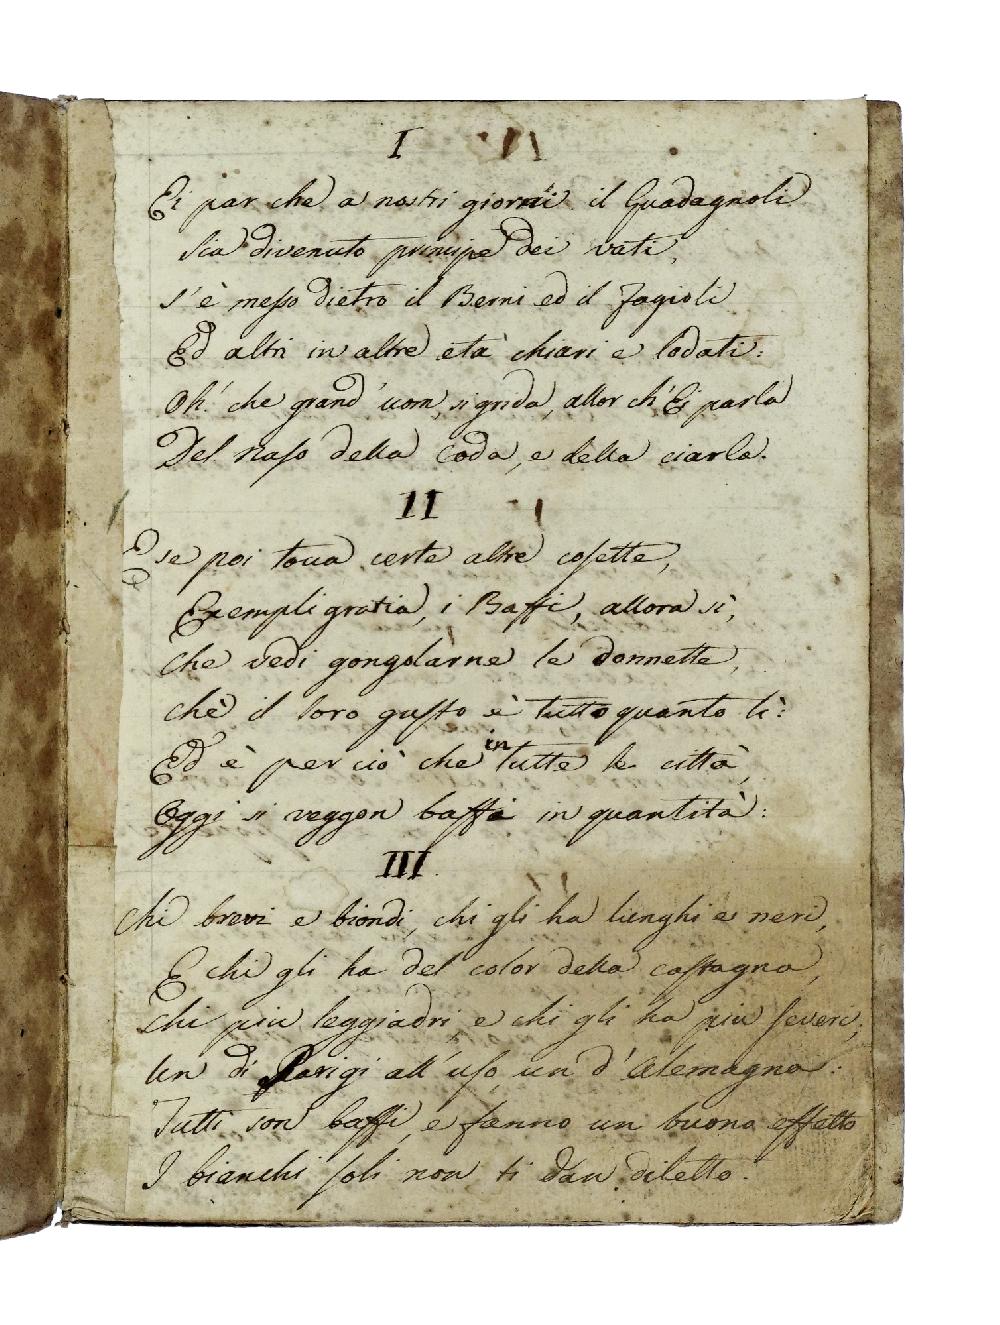 I
Ei par che a nostri giorni il Guadagnoli
Sia divenuto principe dei vati,
S'è messo dietro il Berni ed il Fagioli
Ed altri in altre età chiari e lodati:
Oh! che grand'uom, si grida, allor ch'Ei parla
Del naso della Coda, e della ciarla.
II
E se poi tocca certe altre cosette,
Exempli gratia, i Baffi, allora sì,
Che vedi gongolarne le donnette,
Chè il loro gusto è tutto quanto lì:
Ed è per ciò che in tutte le città,
Oggi si veggon baffi in quantità:
III
Chi brevi e biondi, chi gli ha lunghi e neri,
E chi gli ha del color della castagna,
Chi più leggiadri, e chi gli ha più severi,
Un di Parigi all'uso, un d'Alemagna:
Tutti son baffi, e fanno un buono effetto
I bianchi soli non ti dan diletto.